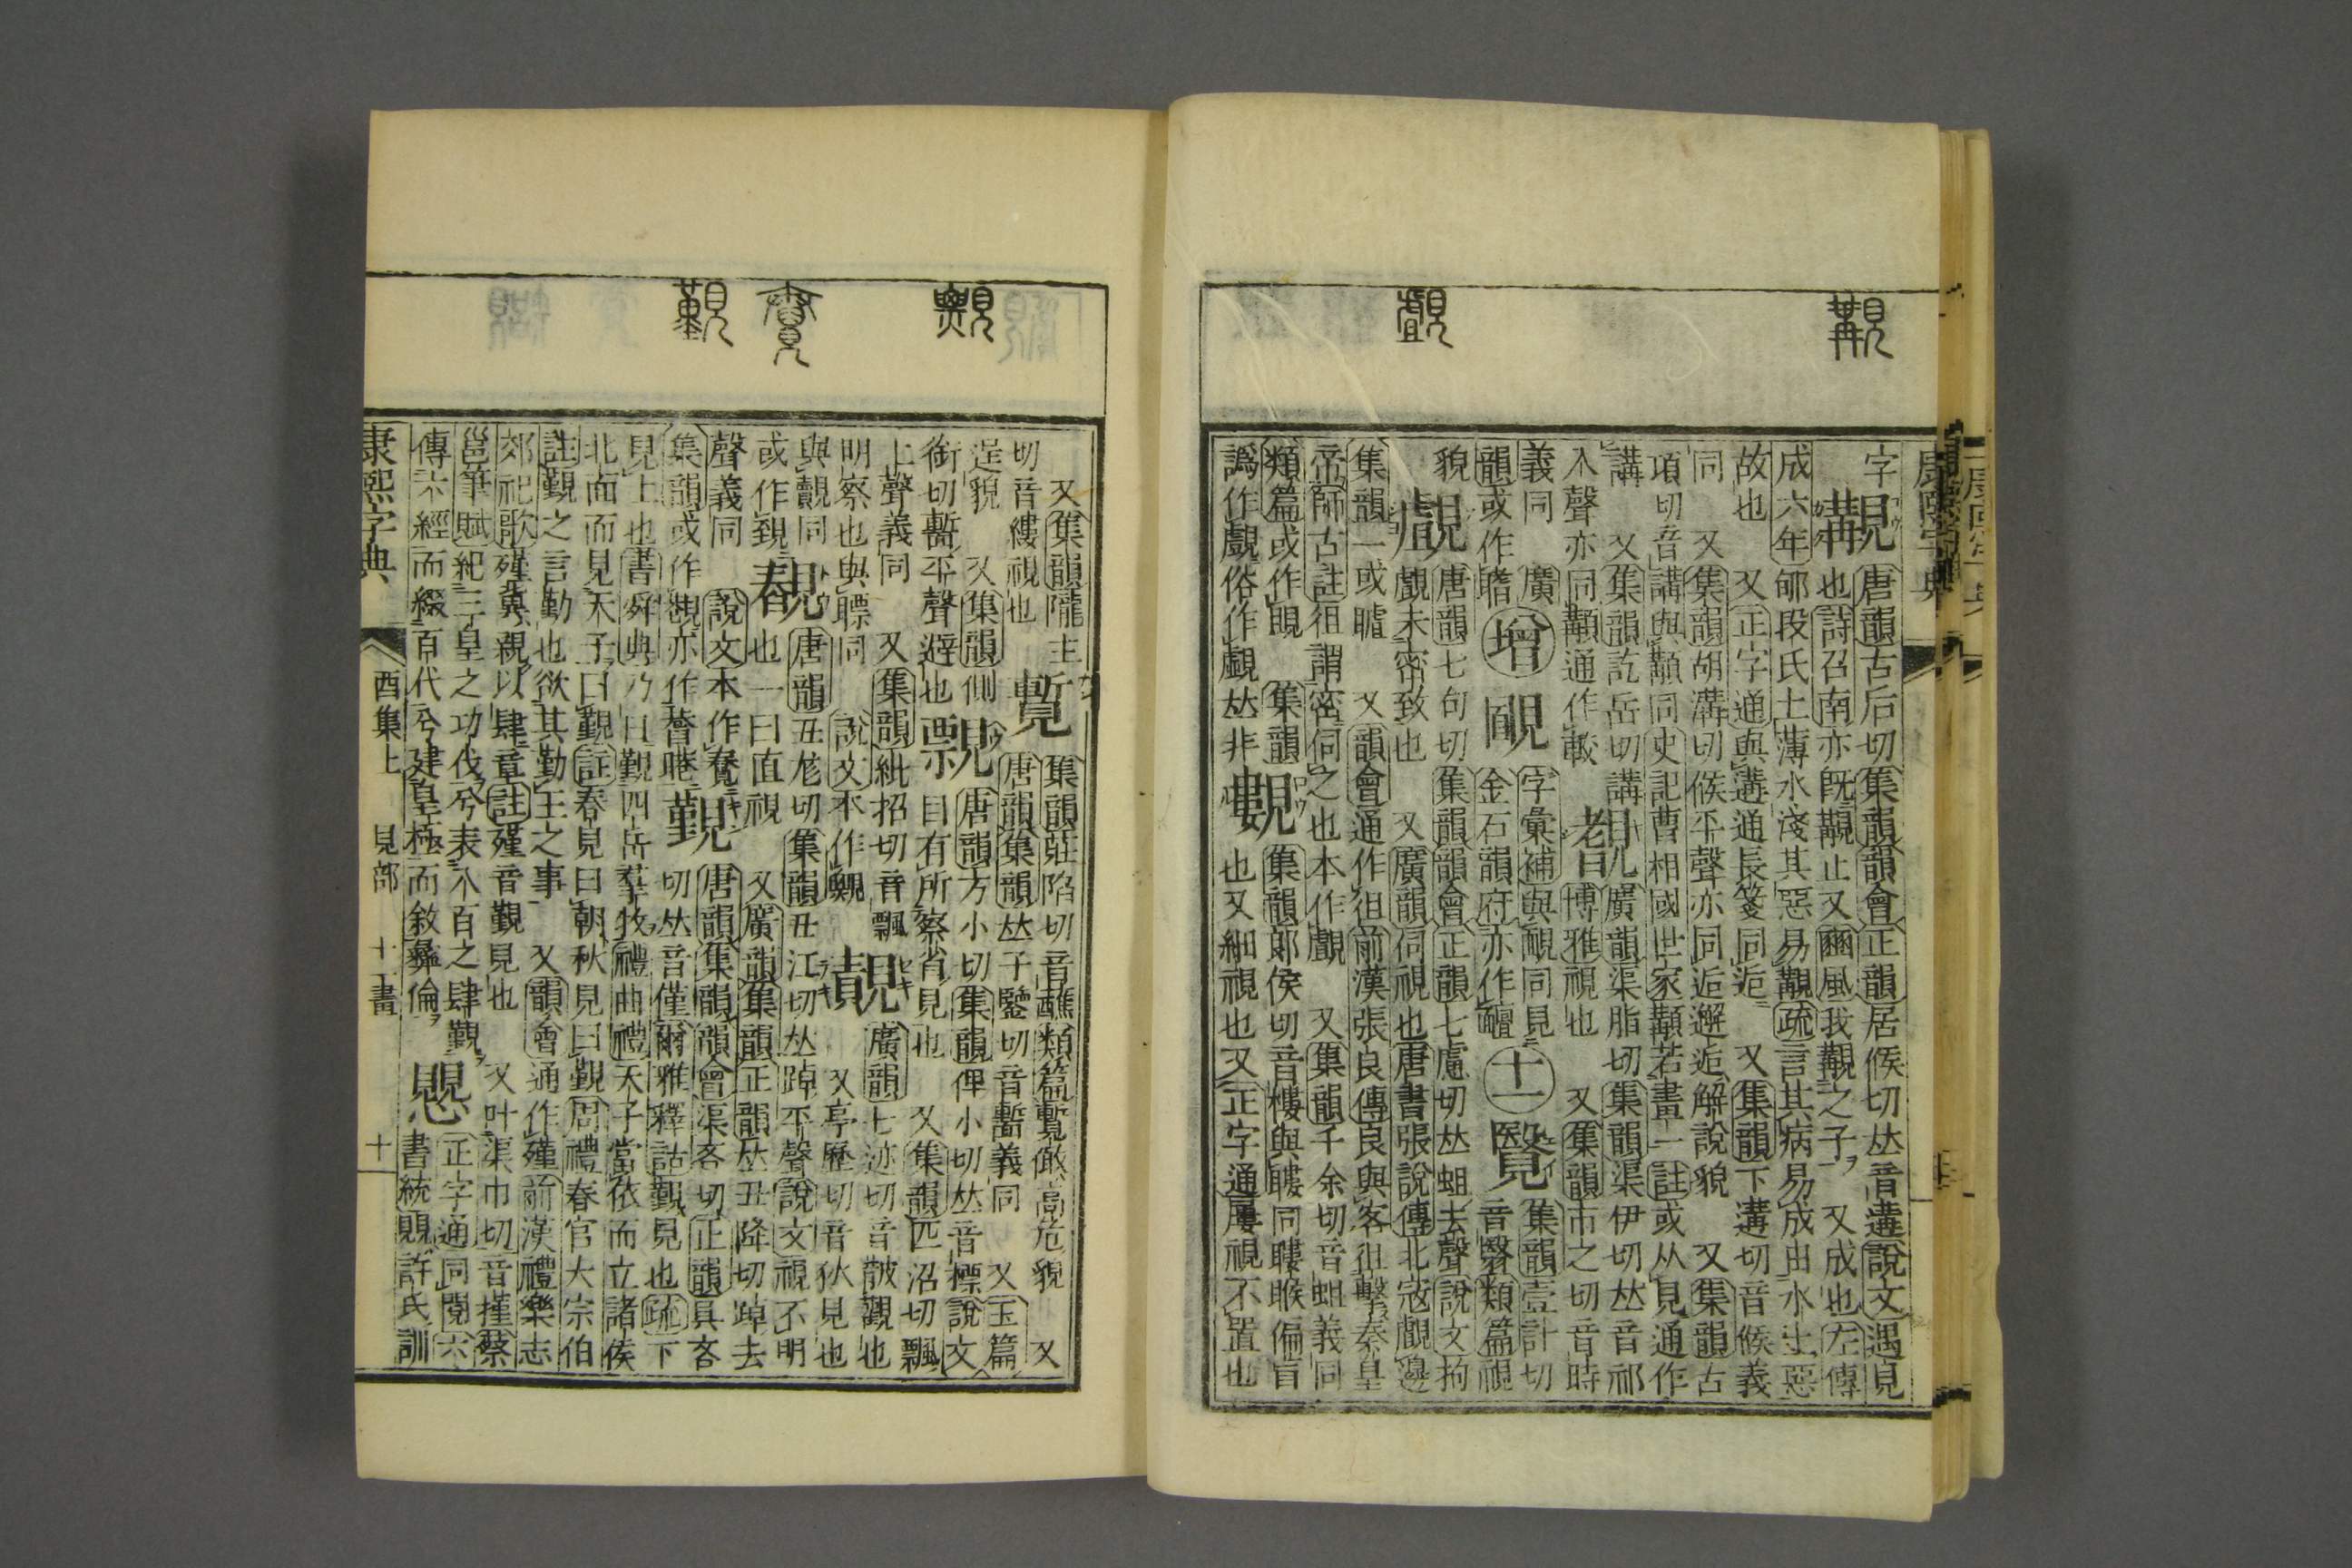 字
覯
唐韻古后切集韻韻會正韻居候切𠀤音遘說文遇見
也詩召南亦旣覯止又豳風我覯之子 又成也左傳
成六年郇段氏土薄水淺其惡易覯疏言其病易成由水土惡
故也 又正字通與遘通長箋同逅 又集韻下遘切音候義
同 又集韻胡溝切候平聲亦同逅邂逅解說貌 又集韻古
項切音講與顜同史記曹相國世家顜若畫一註或从見通作
講 又集韻訖岳切講
入聲亦同顜通作較
廣韻渠脂切集韻渠伊切𠀤音祁
博雅視也 又集韻市之切音時
義同 廣
韻或作
增
字彙補與靦同見
金石韻府亦作
十一
集韻壹計切
音翳類篇視
貌
覰
唐韻七句切集韻韻會正韻七慮切𠀤蛆去聲說文拘
覰未密致也 又廣韻伺視也唐書張說傳北寇覰邊
集韻一或 又韻會通作狙前漢張良傳良與客狙擊秦皇
帝師古註狙謂密伺之也本作覰 又集韻千余切音蛆義同
類篇或作
譌作覻俗作覷𠀤非
集韻
集韻郎侯切音樓與瞜同瞜睺偏盲
也又細視也又正字通屢視不置也
又集韻隴主
切音縷視也
覱
集韻莊陷切音蘸類篇覱高危貌 又
唐韻集韻𠀤子鑒切音蹔義同 又玉篇
逞貌 又集韻側
銜切蹔平聲避也
唐韻方小切集韻俾小切𠀤音標說文
目有所察省見也 又集韻匹沼切飄
上聲義同 又集韻紕招切音飄
明察也與瞟同 說文本作
廣韻七迹切音皵觀也
又亭歷切音狄見也
與覿同
或作
唐韻丑尨切集韻丑江切𠀤踔平聲說文視不明
也一曰直視 又廣韻集韻正韻𠀤丑降切踔去
聲義同 說文本作
集韻或作亦作
覲
唐韻集韻韻會渠吝切正韻具吝
切𠀤音僅爾雅釋詁覲見也疏下
見上也書舜典乃日覲四岳羣牧禮曲禮天子當依而立諸侯
北面而見天子曰覲註春見曰朝秋見曰覲周禮春官大宗伯
註覲之言勤也欲其勤王之事 又韻會通作殣前漢禮樂志
郊祀歌殣冀親以肆章註殣音覲見也 又叶渠巾切音墐蔡
邕筆賦紀三皇之功伐兮表八百之肆覲
傳六經而綴百代兮建皇極而敘彝倫
正字通同閱六
書統許氏訓
康熙字典 酉集上 見部 十一畫 十